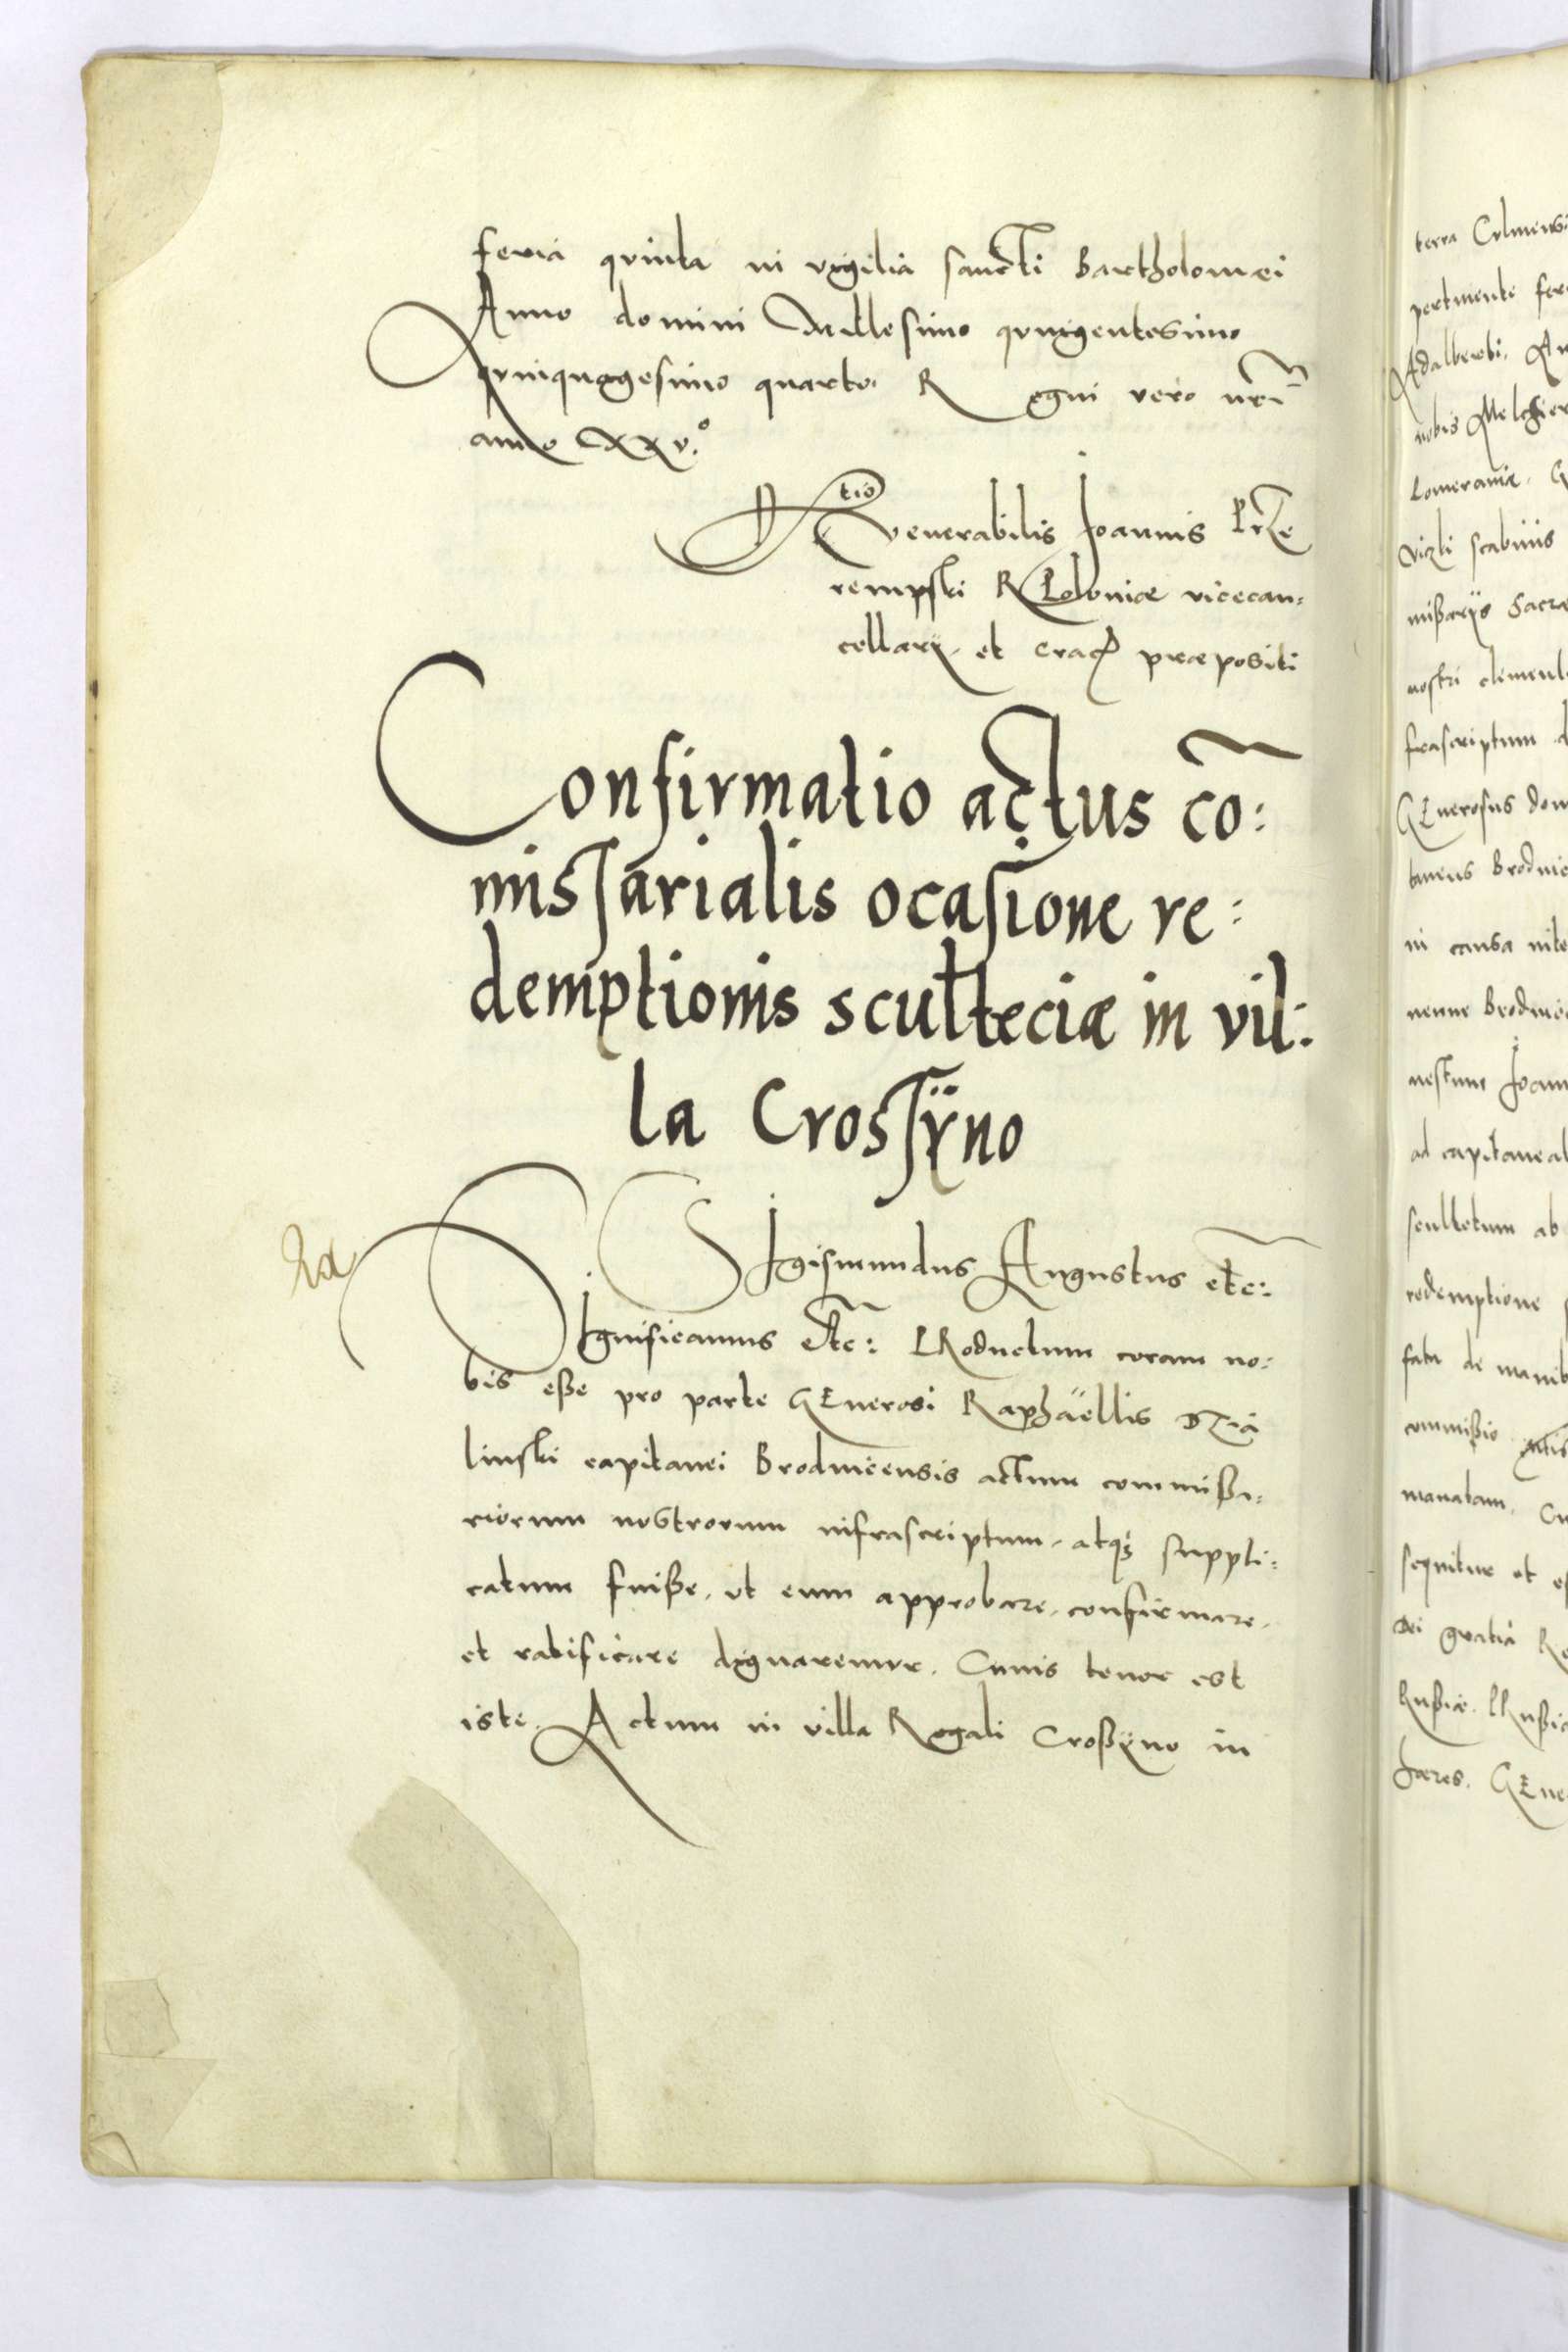 feria quinta in vigilia sancti Bartholomæi
Anno domini Millesimo quingentesimo
quinquagesimo quarto. Regni vero nrĩ
anno XXV.º
Rtio Venerabilis Joannis Prze
rempski R Poloniæ vicecan:
cellarÿ et crac præpositi
Confirmatio actus cõ:
missarialis ocasione re:
demptionis scultteciæ in vil:
la Crossÿno
SIgismundus Augustus etc:
SIgnificamus etc: PRoductum coram no:
bis eße pro parte GEnerosi Raphäellis Dzia
linski capitanei Brodnicensis actum commißa:
riorum nostrorum infrascriptum, atq3 suppli:
catum fuiße, ut eum approbare, confirmare,
et ratificare dignaremur. Cuius tenor est
iste. Actum in villa Regali Croßÿno in
terra Culmensi
pertinente
Adalberti.
nobis Melchier
Pomeraniæ.
scabinis
mißarÿs Sacræ
nostri
frascriptum
GEnerosus
taneus Brodnic
in causa
nestum Joann
ad capitaneal
scultetum ab
redemptione
fata de manib
commißio
manatam.
sequitur et
Dei gratia
Rußiæ. PRußiæ
hæres. GEne